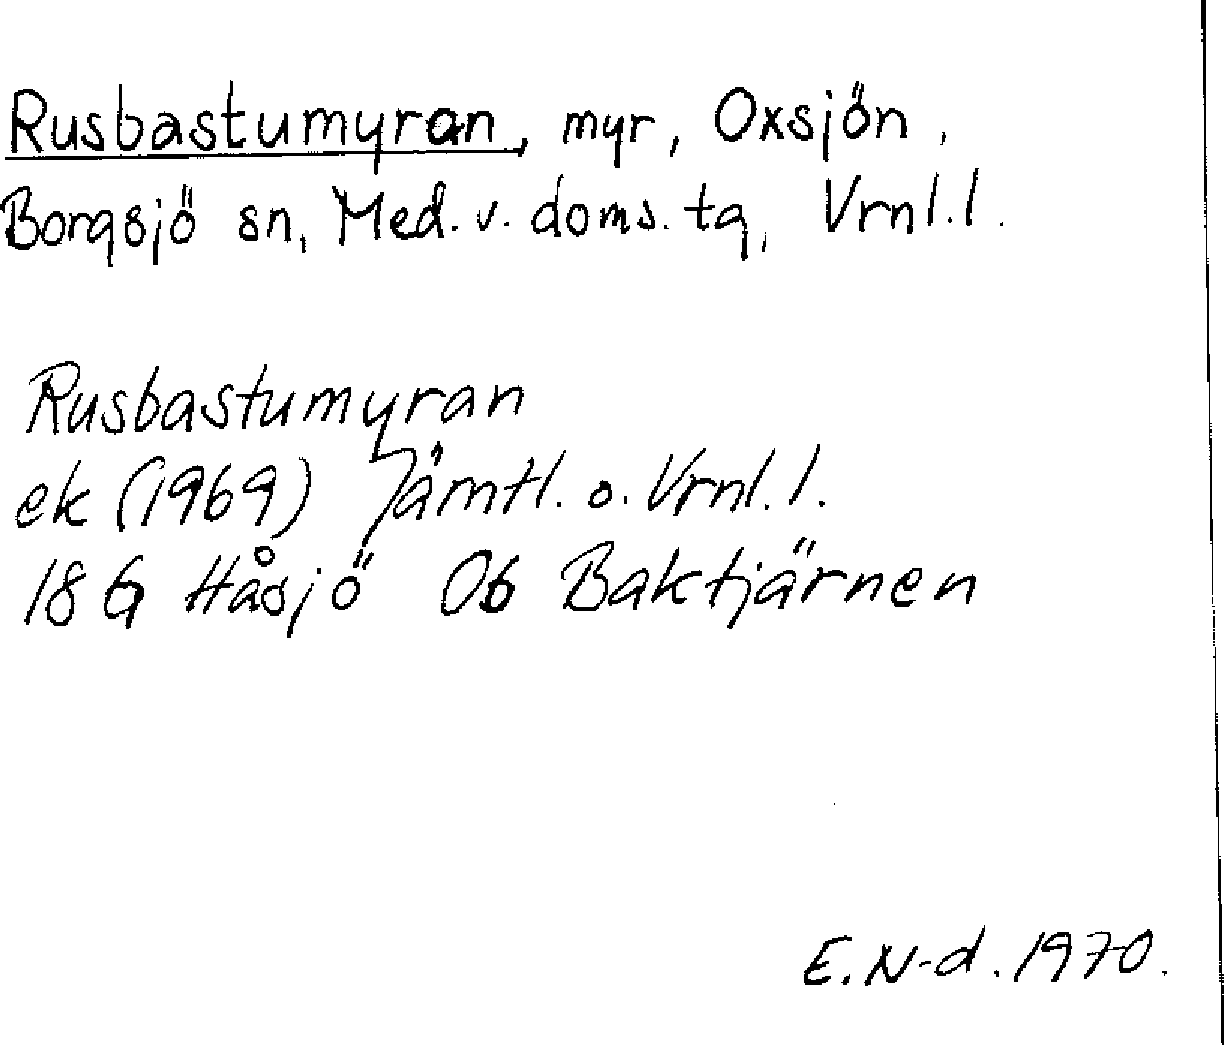 Rusbastumyran, myr, Oxsjön,
Borgsjö sn, Med. v. doms. tg, Vrnl. l.
Rusbastumyran
ek (1969) Jämtl. o. Vrnl. l.
18 G Håsjö Ob Baktjärnen
E. N-d. 1970.